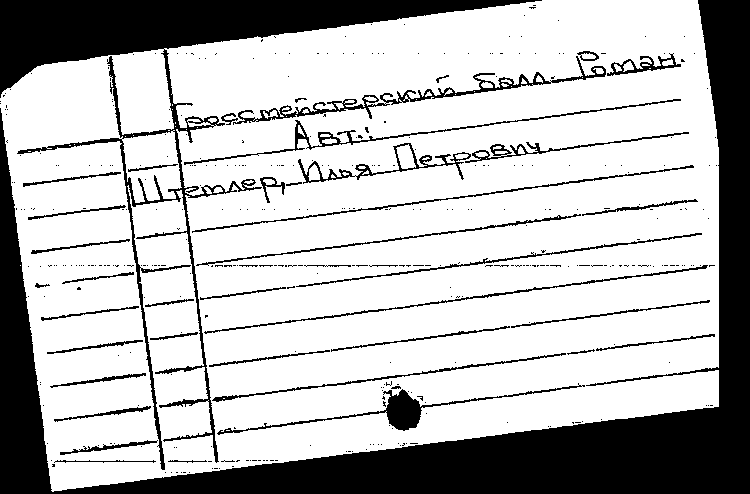 Гроссмейстерский балл. Роман.
Авт.:
Штемлер, Илья Петрович.